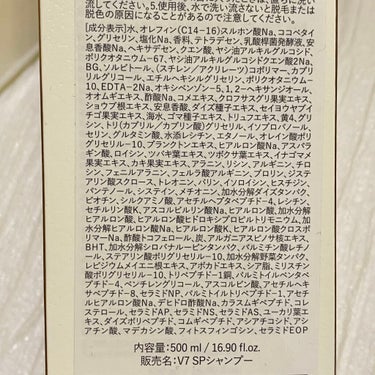 流してください。5.使用後、水で洗い流さないと脱毛または
脱色の原因になることがあります。
[成分表示]水、オレフィン(C14-16)スルホン酸Na、ココベタイン、
グリセリン、塩化Na、香料、テトラデセン、乳酸桿菌発酵液、安
息香酸Na、ヘキサデセン、クエン酸、ヤシ油アルキルグルコシド、
ポリクオタニウム-67、ヤシ油アルキルグルコシドクエン酸2Na、
BG、ソルビトール、(スチレン/アクリレーツ)コポリマー、カプ
リリルグリコール、エチルヘキシルグリセリン、ポリクオタニウム-
10、EDTA-2Na、オキシベンゾン-5、1,2-ヘキサンジオール、
オオムギエキス、酢酸Na、コメエキス、クロフサスグリ果実エキス、
ショウブ根エキス、安息香酸、ダイズ種子エキス、セイヨウヤブイ
チゴ果実エキス、海水、ゴマ種子エキス、トリュフエキス、黄4、グリ
シン、トリ(カプリル/カプリン酸)グリセリル、イソプロパノール、
セリン、グルタミン酸、水添レシチン、エタノール、オレイン酸ポリ
グリセリル-10、プランクトンエキス、ヒアルロン酸Na、アスパラ
ギン酸、ロイシン、ツバキ葉エキス、ツボクサ葉エキス、イナゴマメ
果実エキス、カキ果実エキス、アラニン、リシン、アルギニン、チロ
シン、フェニルアラニン、フェルラ酸アルギニン、プロリン、ジステ
アリン酸スクロース、トレオニン、バリン、イソロイシン、ヒスチジン、
パンテノール、システイン、メチオニン、加水分解ダイズタンパク、
ビオチン、シルクアミノ酸、アセチルヘプタペプチド-4、レシチン、
セチルリン酸K、アスコルビルリン酸Na、ヒアルロン酸、加水分解
ヒアルロン酸、ヒアルロン酸ヒドロキシプロピルトリモニウム、
加水分解ヒアルロン酸Na、ヒアルロン酸K、ヒアルロン酸クロスポ
リマーNa、酢酸トコフェロール、炭、アルガニアスピノサ核エキス、
BHT、加水分解シロバナルーピンタンパク、パルミチン酸レチノール、
ステアリン酸ポリグリセリル-10、加水分解野菜タンパク、
レピジウムメイエニ根エキス、アボカドエキス、シア脂、ミリスチン
酸ポリグリセリル-10、トリペプチド-1銅、パルミトイルペンタペ
プチド-4、ペンチレングリコール、アスコルビン酸、アセチルヘキ
サペプチド-8、セラミドNP、パルミトイルトリペプチド-1、アセチ
ルヒアルロン酸Na、デヒドロ酢酸Na、カラスムギペプチド、コレス
テロール、セラミドAP、セラミドNS、セラミドAS、ユーカリ葉エ
キス、ダイズポリペプチド、コムギペプチド、アシアチコシド、アシ
アチン酸、マデカシン酸、フィトスフィンゴシン、セラミドEOP
内容量:500 ml / 16.90 fl.oz.
販売名:V7 SPシャンプー